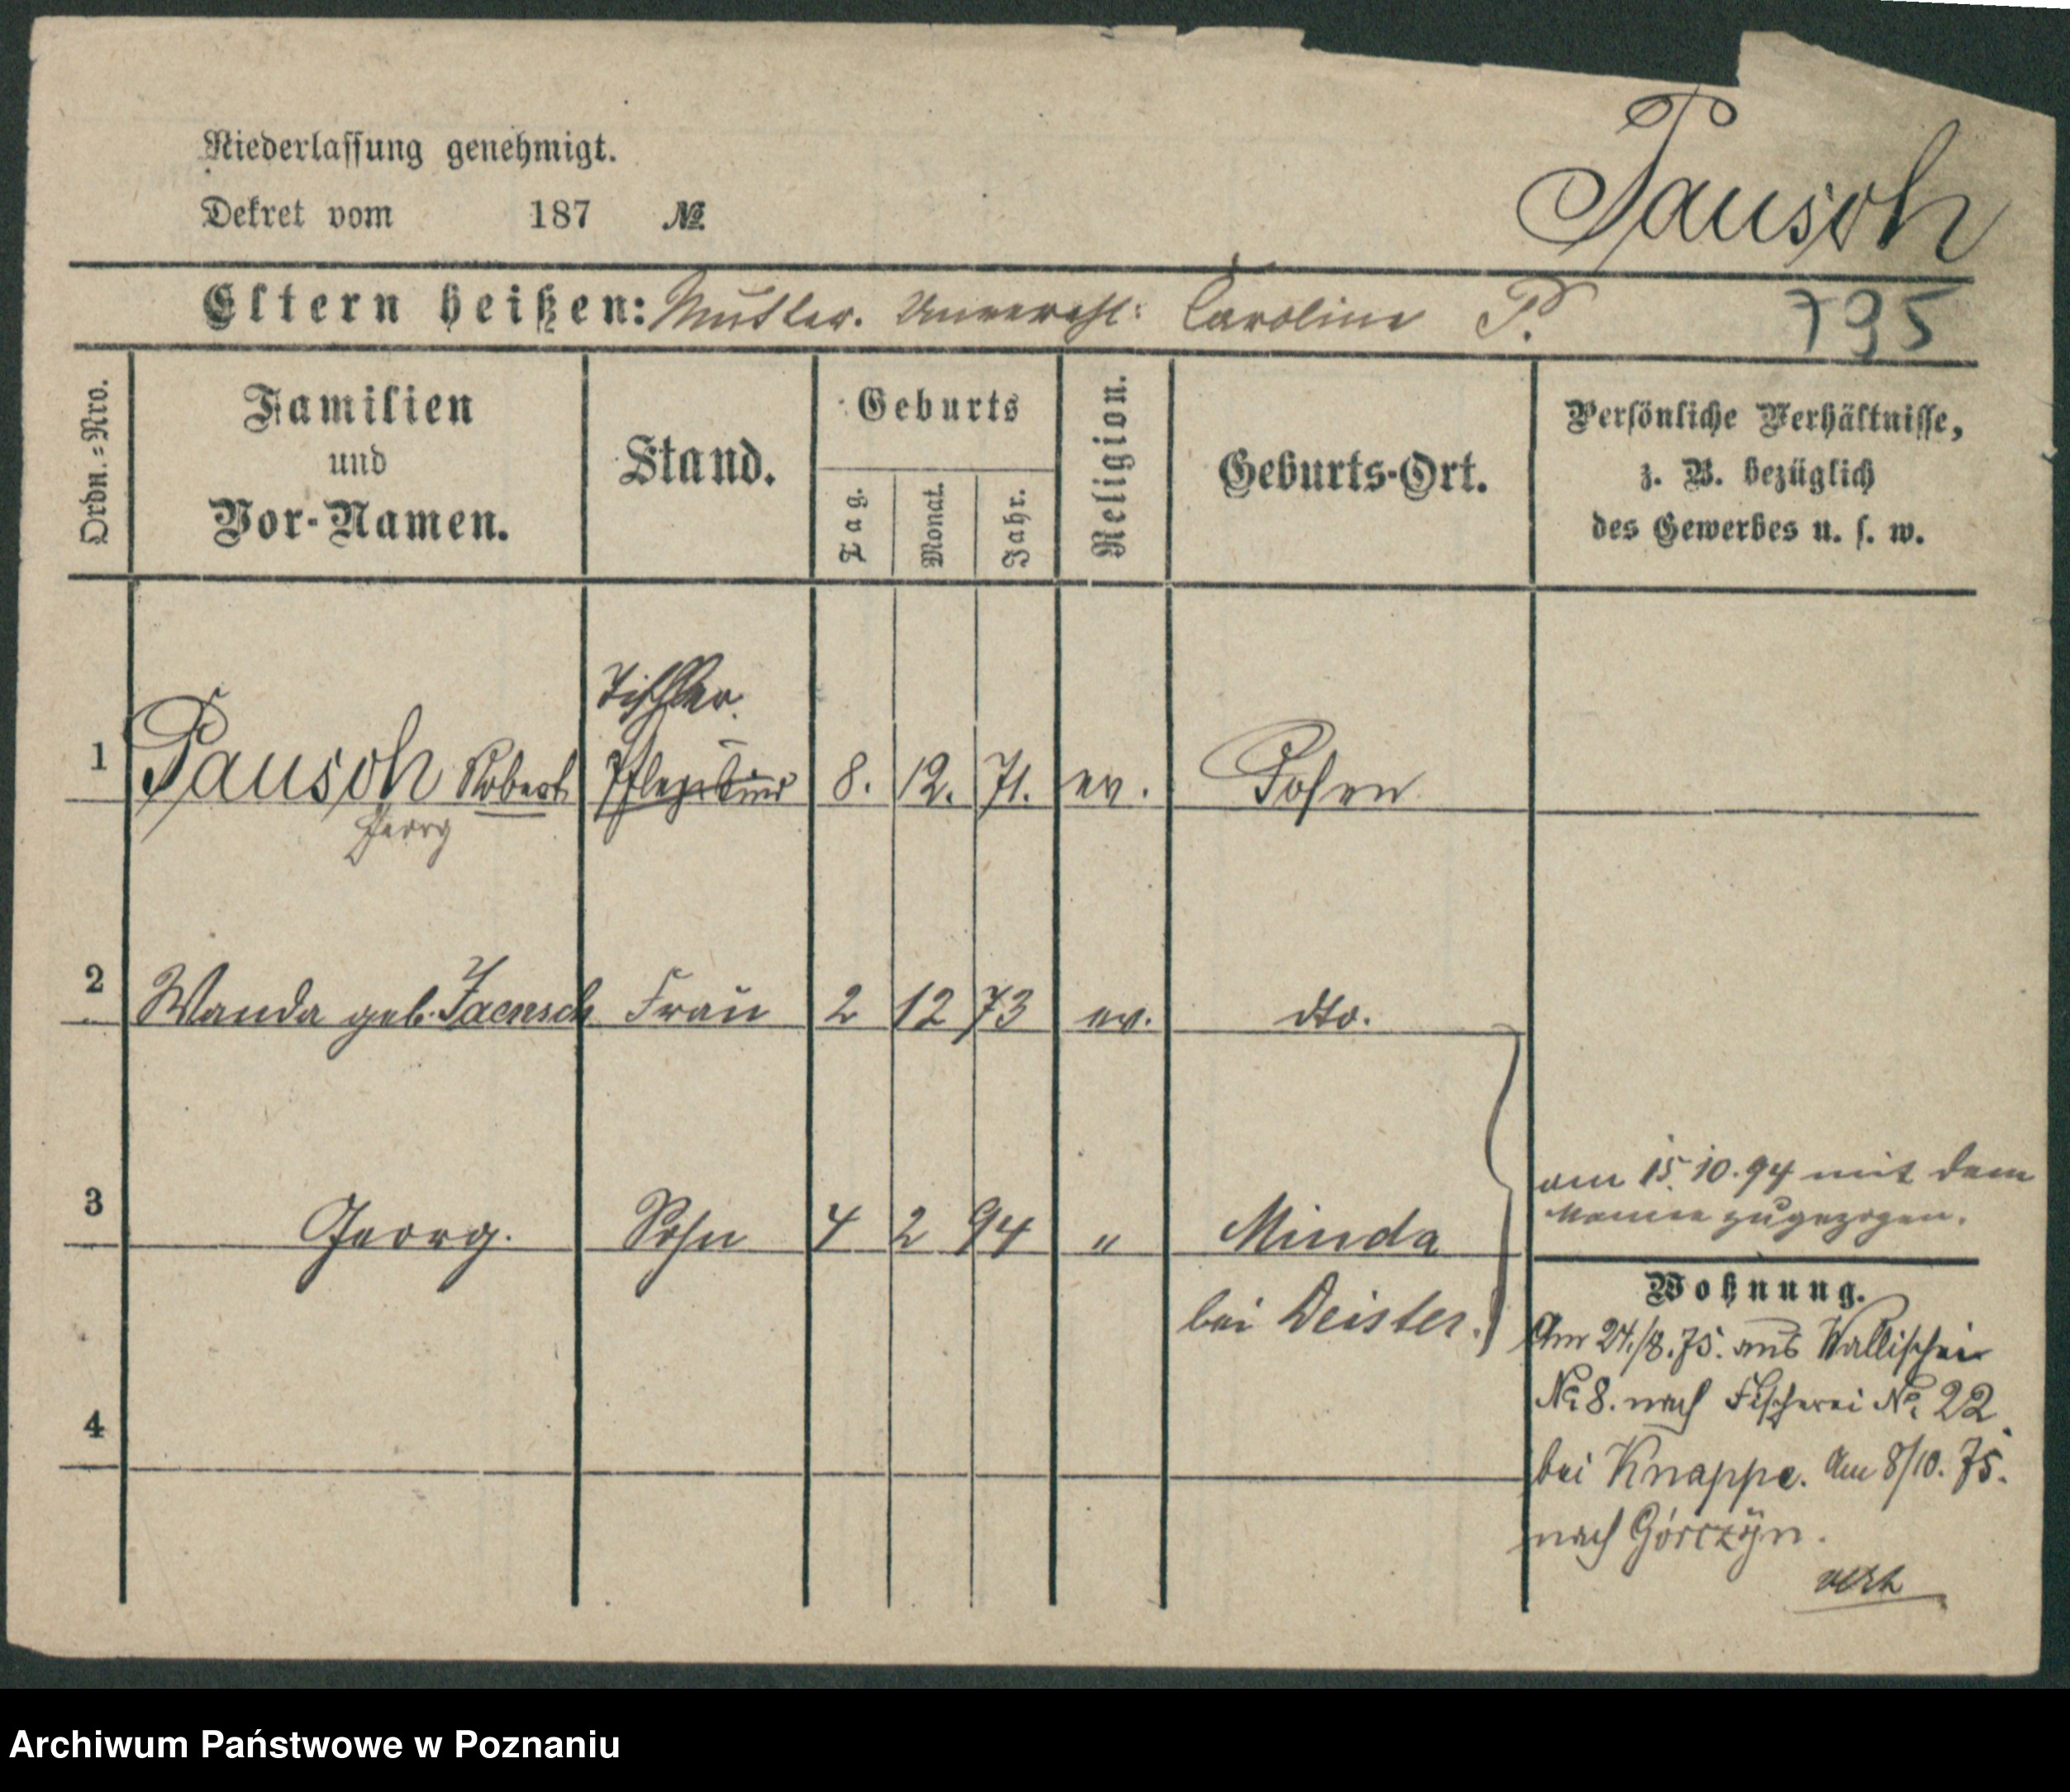 Niederlassung genehmigt.
Dekret vom 187 №
Pausch
Eltern heißen: Mutter. Unverehl: Caroline P.
795
Ordn.=Nro.
Familien
und
Vor-Namen.
Stand.
Geburts
Tag.
Monat.
Jahr.
Religion.
Geburts-Ort.
Persönliche Verhältnisse,
z. B. bezüglich
des Gewerbes u. s. w.
Tischler.
1 Pausch Robert Pflegekind 8. 12. 71. ev. Posen
Georg
2 Wanda geb. Jaensch Frau 2 12 73 ev. dto.
3 Georg. Sohn 4 2 94 " Minda
bei Deister.
am 15.10.94 mit dem
Manne zugezogen.
Wohnung.
Am 24./8.75. aus Wallischei
No 8. nach Fischerei No 22.
bei Knappe. Am 8/10. 75.
nach Górczyn.
4
Archiwum Państwowe w Poznaniu